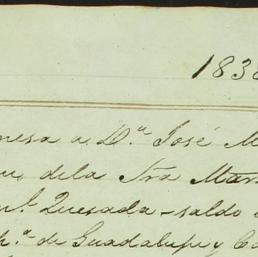 1838
mesa a D.ⁿ José M
dela Sra Mar
Quesada - saldo
h.ª de Guadalupe y Ca